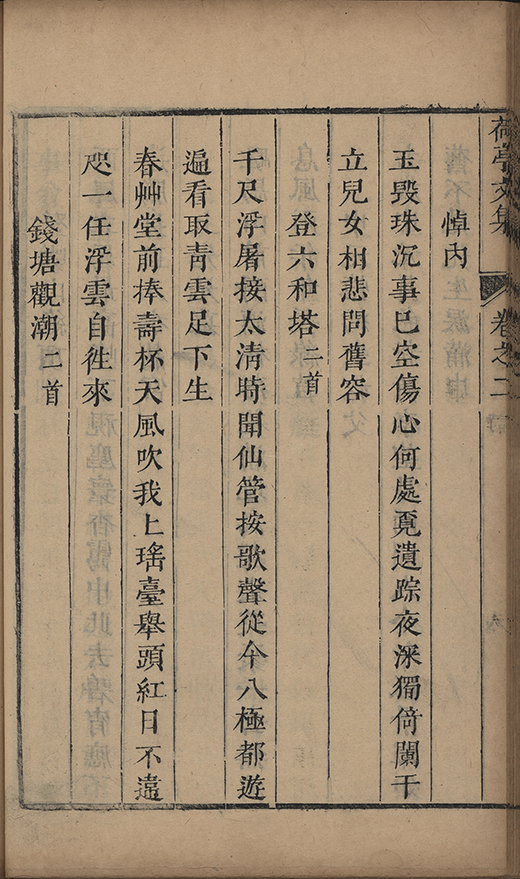 荷亭文集
卷之二
悼內
玉毀珠沉事巳空傷心何處覔遺踪夜深獨倚闌干
立兒女相悲問舊容
登六和塔二首
千尺浮屠接太清時聞仙管按歌聲從今八極都遊
遍看取青雲足下生
春艸堂前捧壽杯天風吹我上瑤臺舉頭紅日不遠
咫一任浮雲自徃來
錢塘觀潮二首